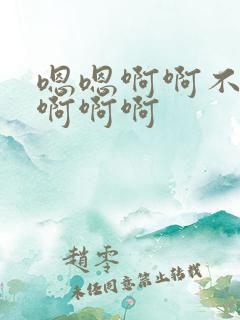 嗯嗯啊啊不
啊啊啊
趙零
未经同意禁止转载